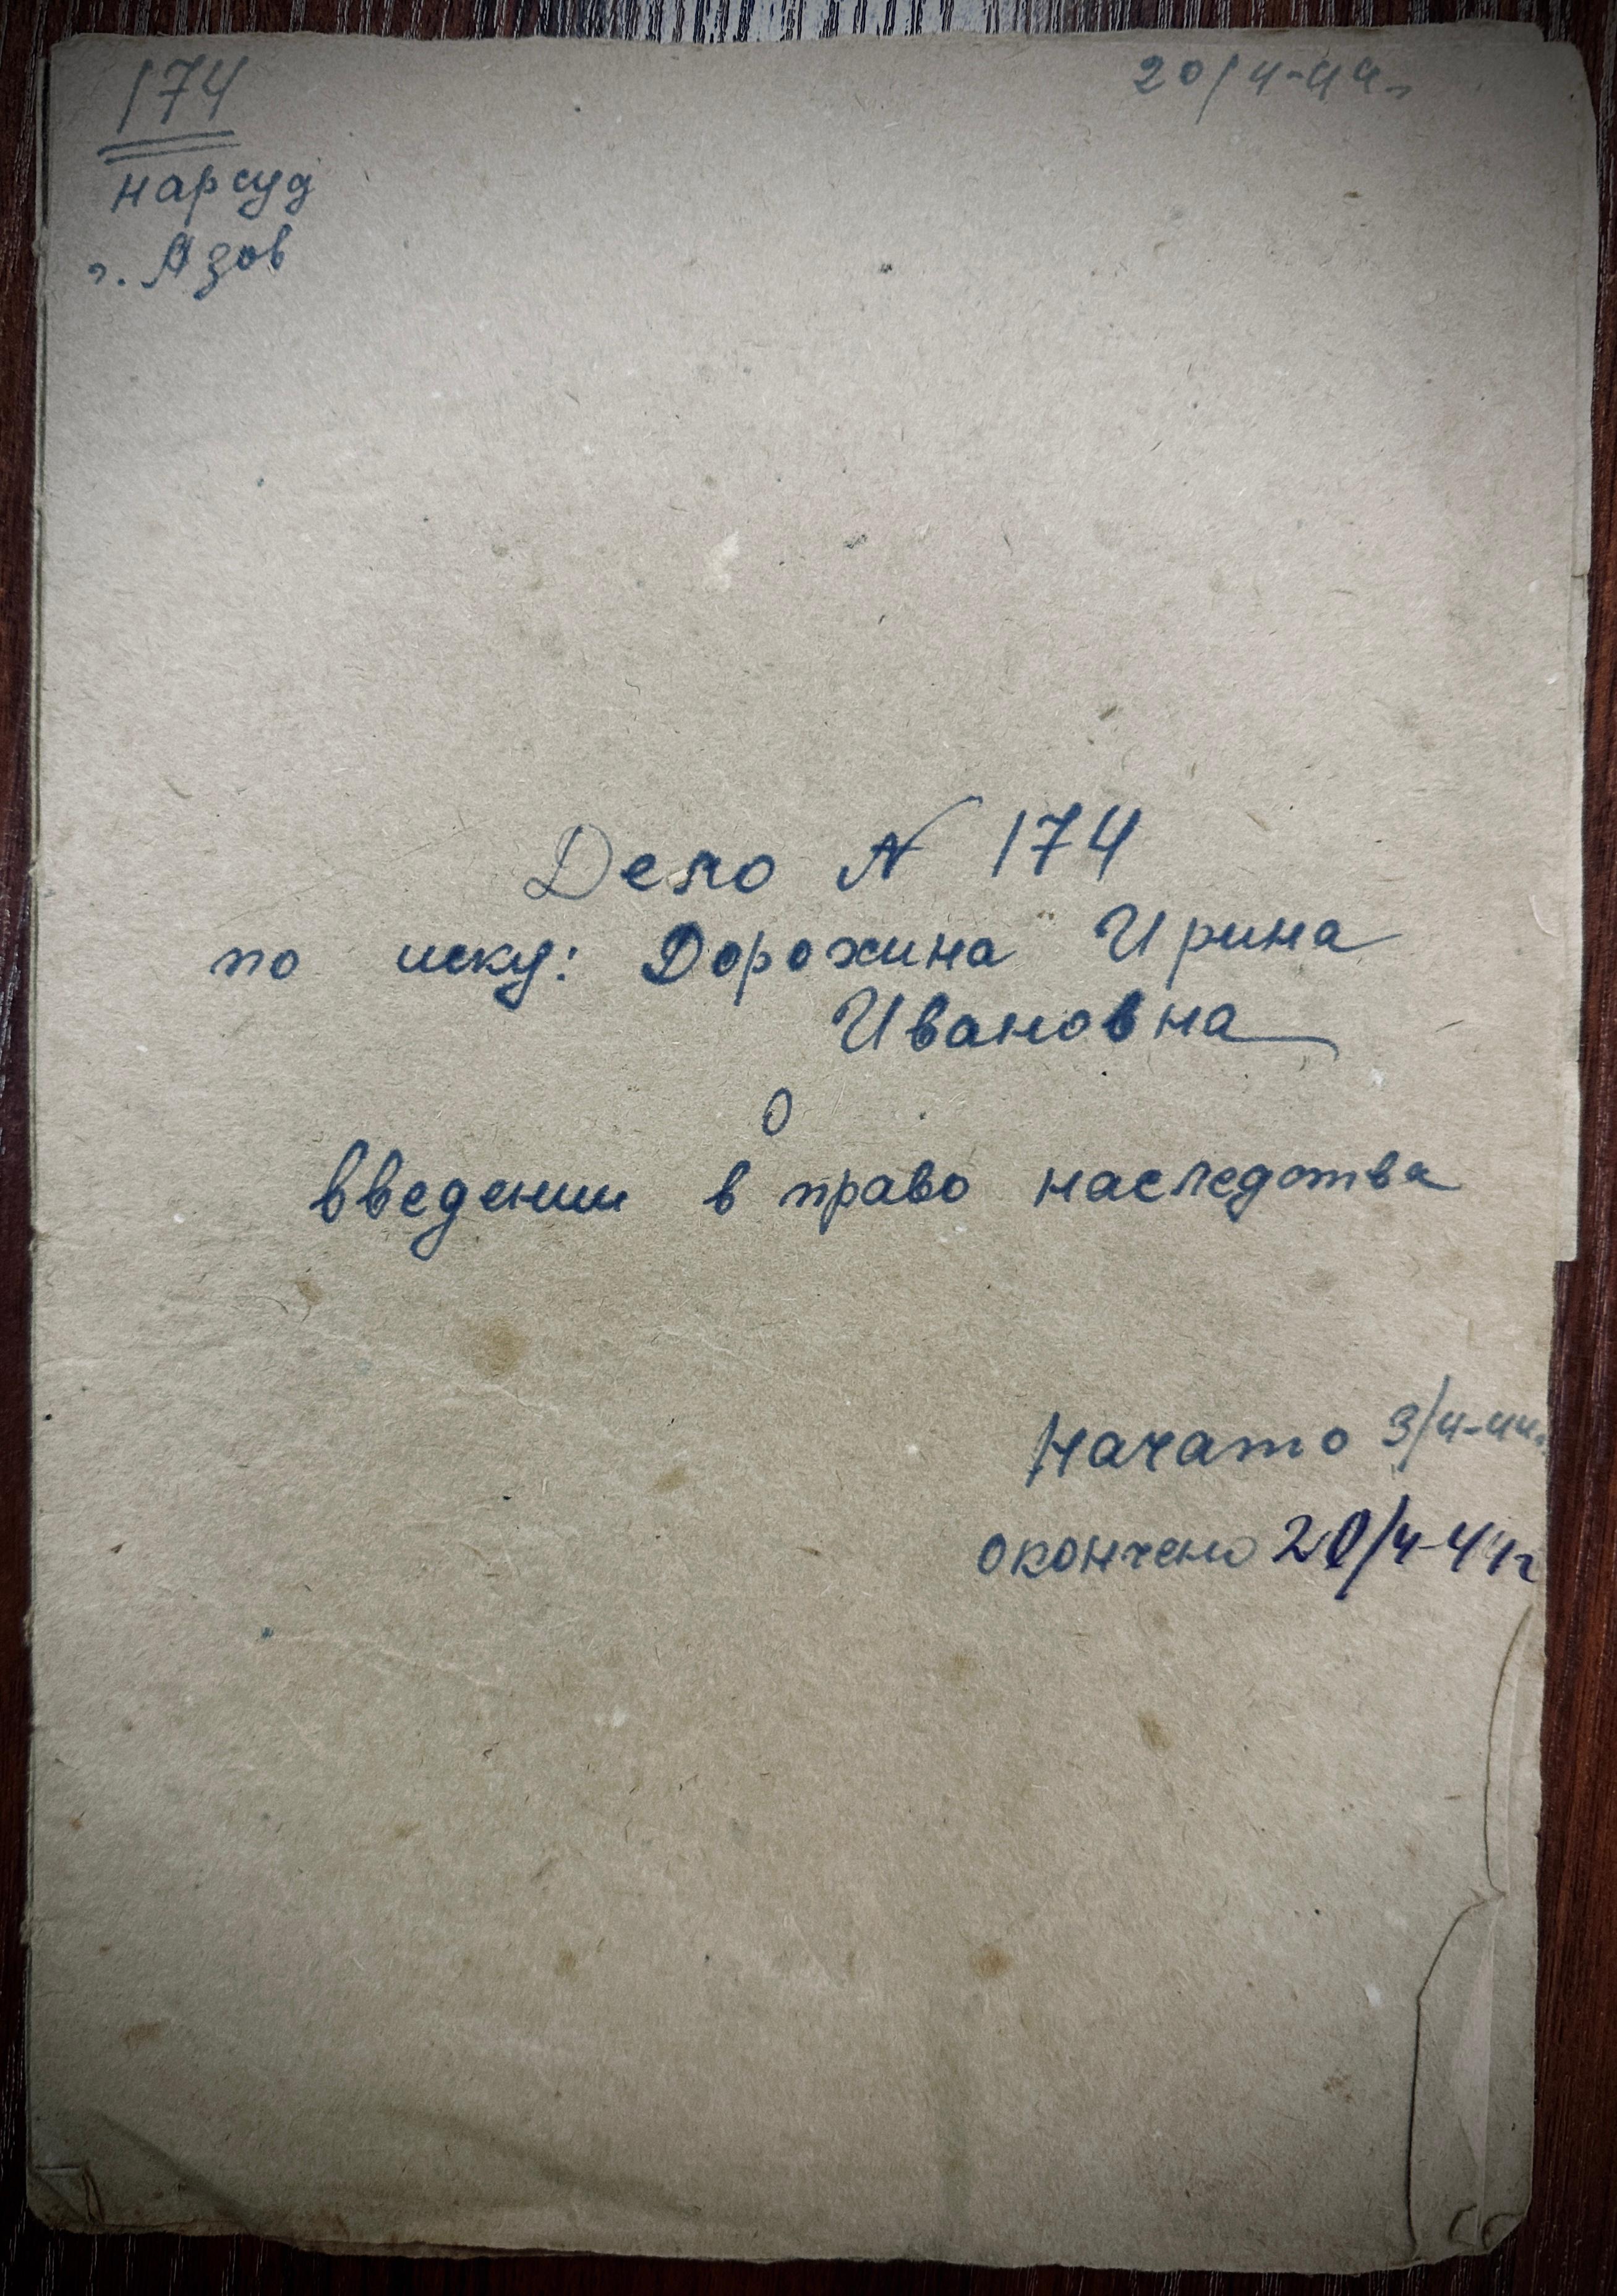 174
20/4-44г
нарсуд
г. Азов
Дело N 174
по иску: Дорожина Ирина
Ивановна
О
введении в право наследства
Начато 3/4-44г.
окончено 20/4-44г